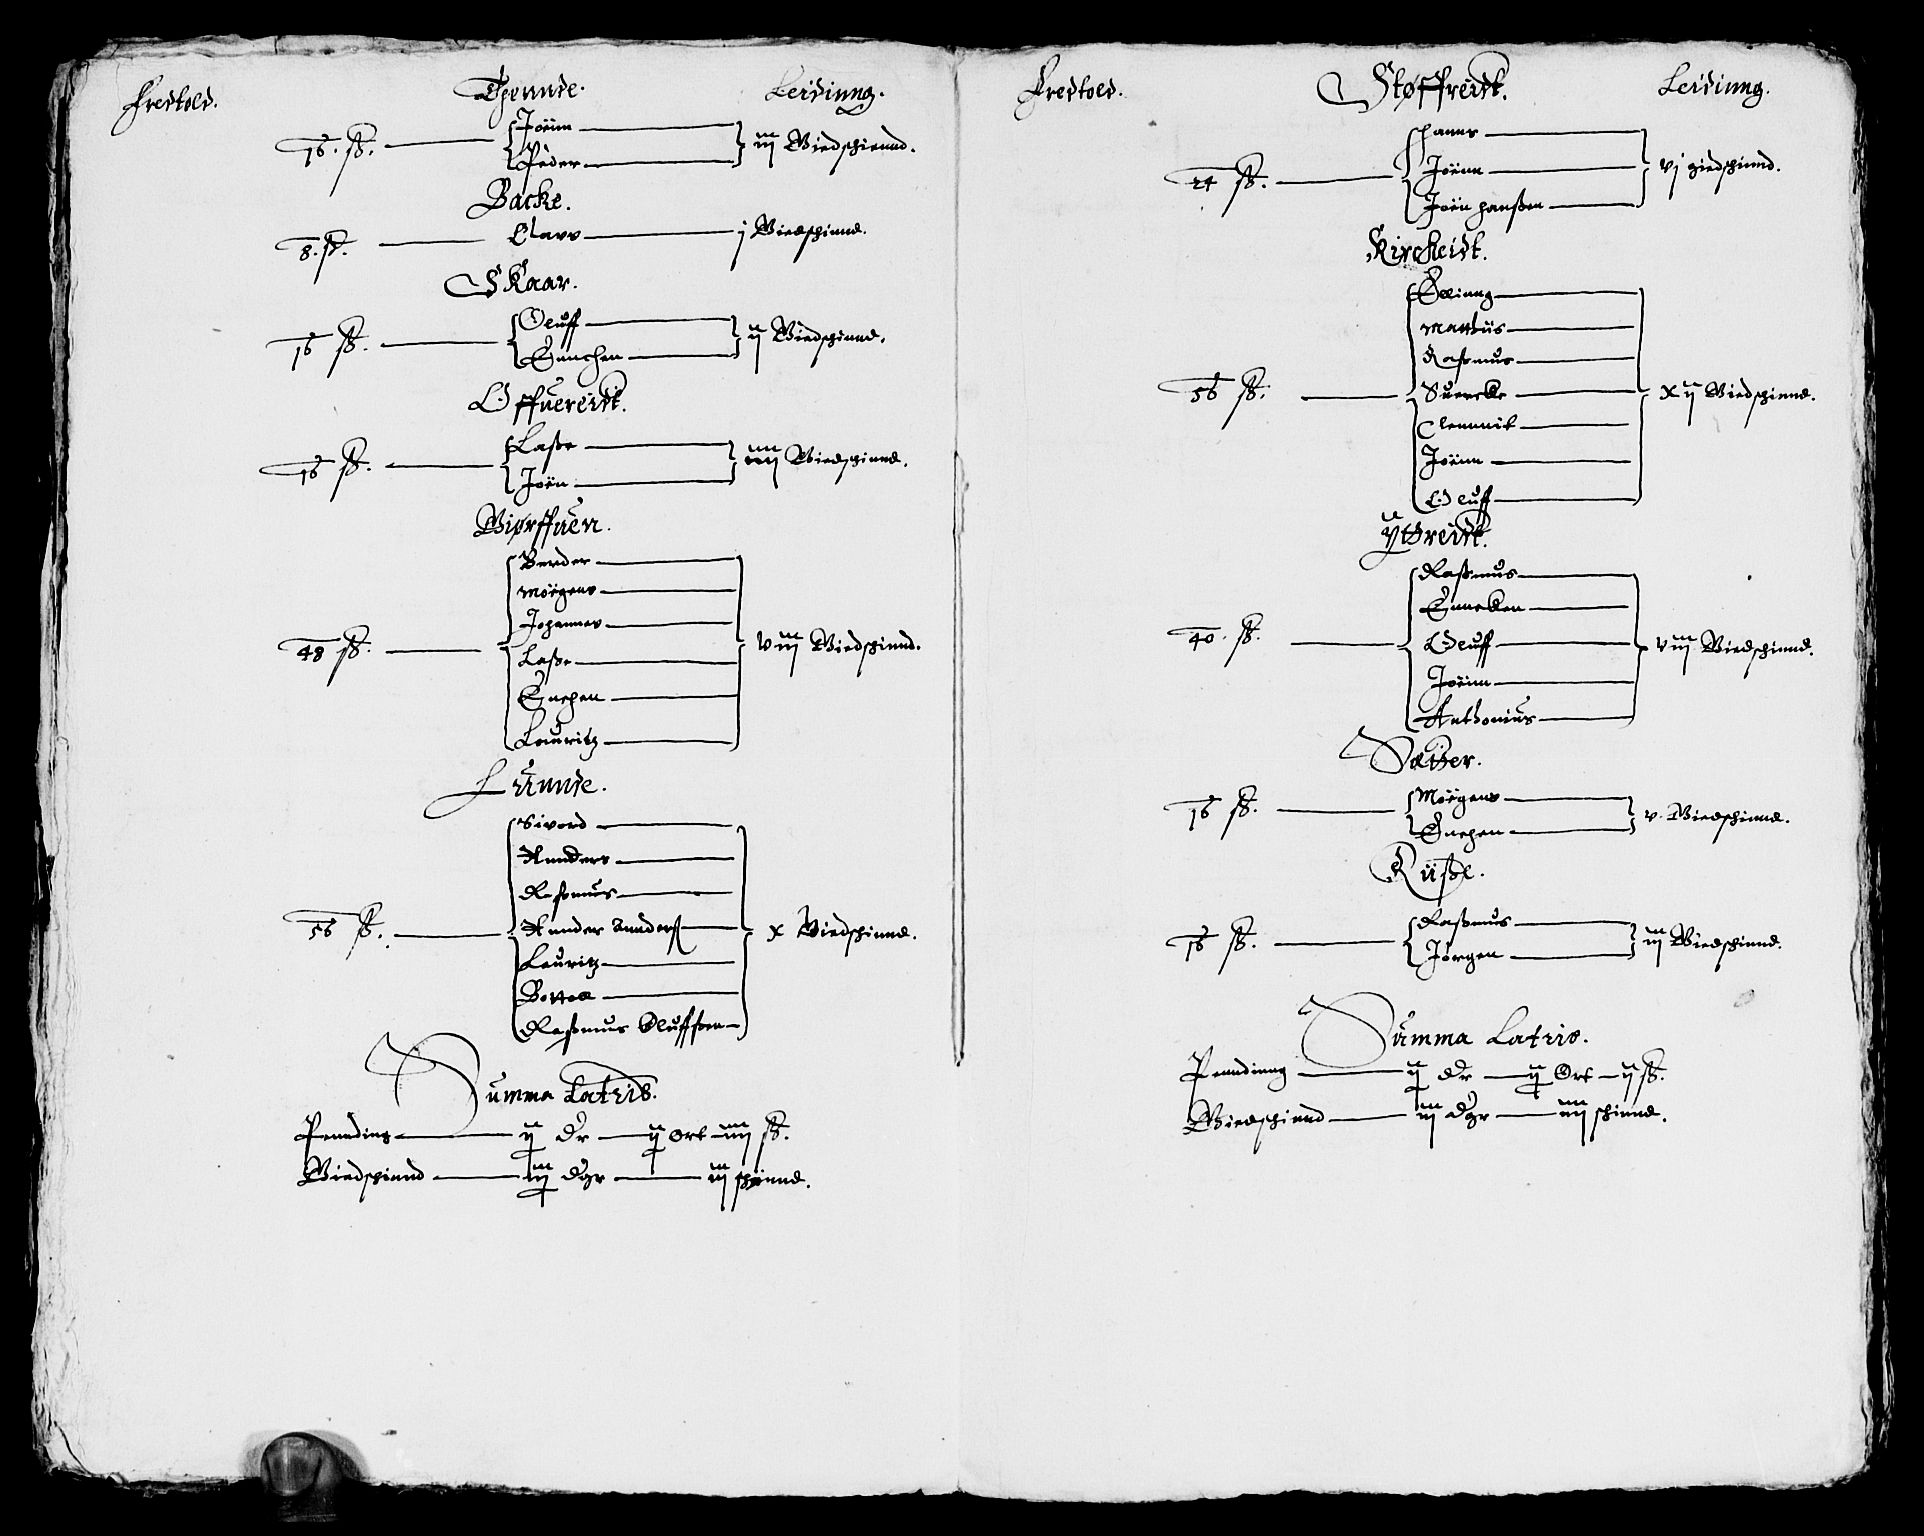 Fredtold. Thennde. Leidinng.
16. ß. Joënn
Peder iij Wiedschinnd.
Backe.
8. ß. Clavs j Wiedschinnd.
Skaar.
16 ß. Oluff
Ennchen ij Wiedschinnd.
Offuereidt.
16 ß. Laße
Joën iiij Wiedschinnd.
Biørffuen.
48 ß. Berder
Moëgens
Johannes
Laße
Enchen
Lauritz viij Wiedschinnd.
Lunnde.
56 ß. Sivord
Annders
Raßmus
Annder Annders
Lauritz
Bottel
Raßmus Oluffßen x Wiedschinnd.
Summa Lateris.
Pennding ij dr ij ort iiij ß.
Wiedschinnd iij dgr iij schinnd.
Fredtold. Støffreidt. Leidinng.
24 ß. Hanns
Joënn
Joën Hanßen vj Wiedschinnd.
Kirckeidt.
56 ß. Elling
Mattiis
Raßmus
Suencke
Clemmit
Joënn
Oluff xij Wiedschinnd.
Yttreidt.
40. ß. Raßmus
Enncken
Oluff
Joënn
Anthonius viij Wiedschinnd.
Sætter.
16 ß. Moëgens
Enchen v. Wiedschinnd.
Rüße.
16 ß. Raßmus
Jørgen iij Wiedschinnd.
Summa Lateris.
Penndinng ij dr ij Ort ij ß.
Wiedschinnd iij dgr iiij schinnd.